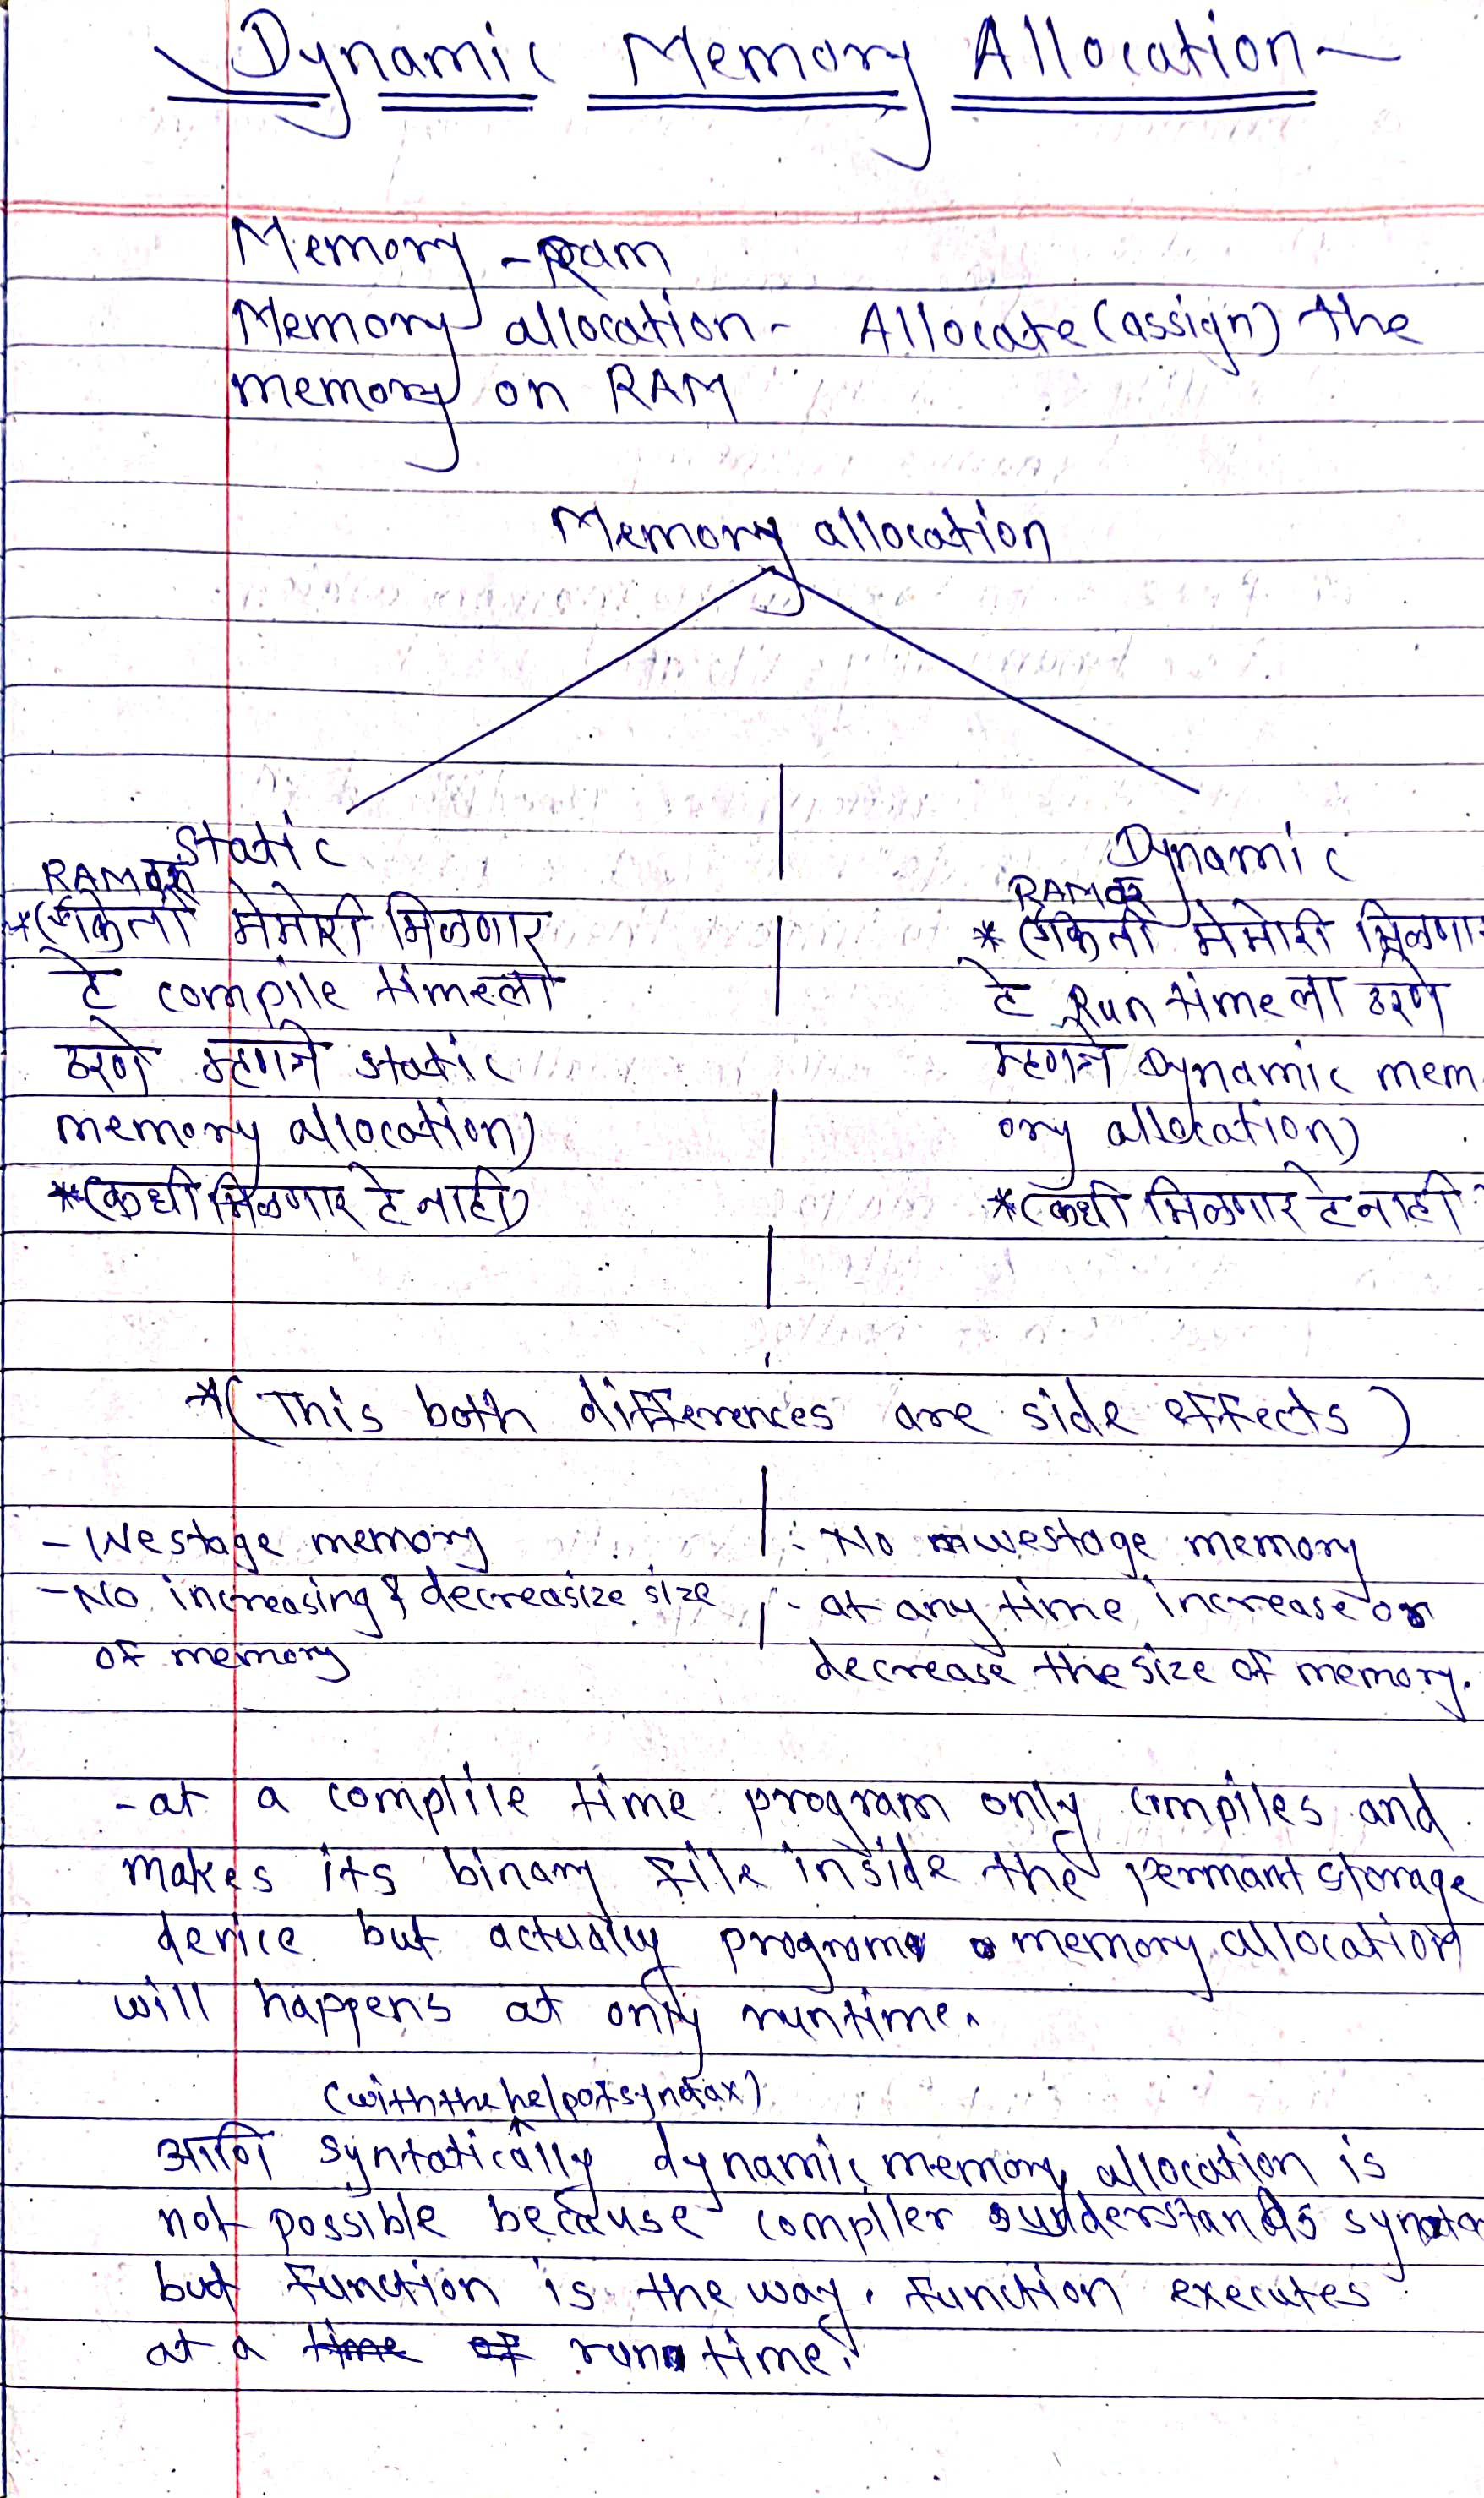 Dynamic Memory Allocation
Memory - Ram
Memory allocation - Allocate (assign) the
memory on RAM
Memory allocation
Static
RAM वर
*(किती मेमोरी मिळणार
हे compile time ला
ठरणे म्हणजे static
memory allocation)
*(कधी मिळणार हे नाही)
Dynamic
RAM वर
*(किती मेमोरी मिळणार
हे Run time ला ठरणे
म्हणजे Dynamic mem
ory allocation)
*(कधी मिळणार हे नाही
*(This both differences are side effects)
- Westage memory
- No increasing & decreasize size
of memory
- No westage memory
- at any time increase or
decrease the size of memory.
- at a complile time program only compiles and
makes its binary file inside the permant storage
device but actually program memory allocation
will happens at only runtime.
(with the help of syntax)
आणि syntatically dynamic memory allocation is
not possible because compiler understands
but function is the way. Function executes
at a time of run time.